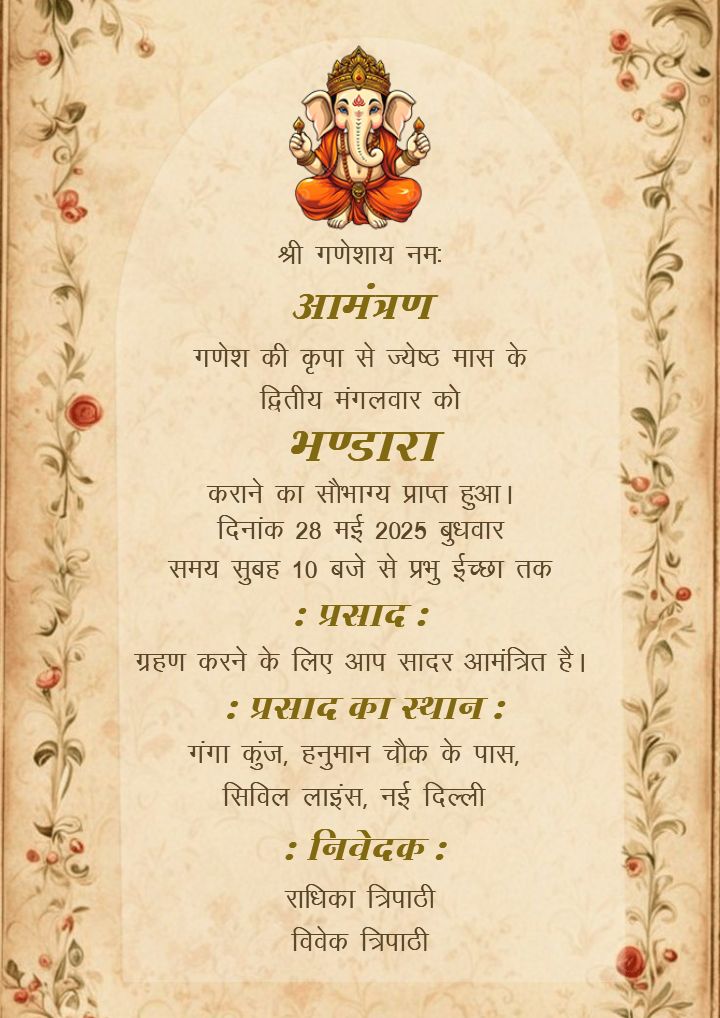 श्री गणेशाय नमः
आमंत्रण
गणेश की कृपा से ज्येष्ठ मास के
द्वितीय मंगलवार को
भण्डारा
कराने का सौभाग्य प्राप्त हुआ।
दिनांक 28 मई 2025 बुधवार
समय सुबह 10 बजे से प्रभु ईच्छा तक
: प्रसाद :
ग्रहण करने के लिए आप सादर आमंत्रित है।
: प्रसाद का स्थान :
गंगा कुंज, हनुमान चौक के पास,
सिविल लाइंस, नई दिल्ली
: निवेदक :
राधिका त्रिपाठी
विवेक त्रिपाठी